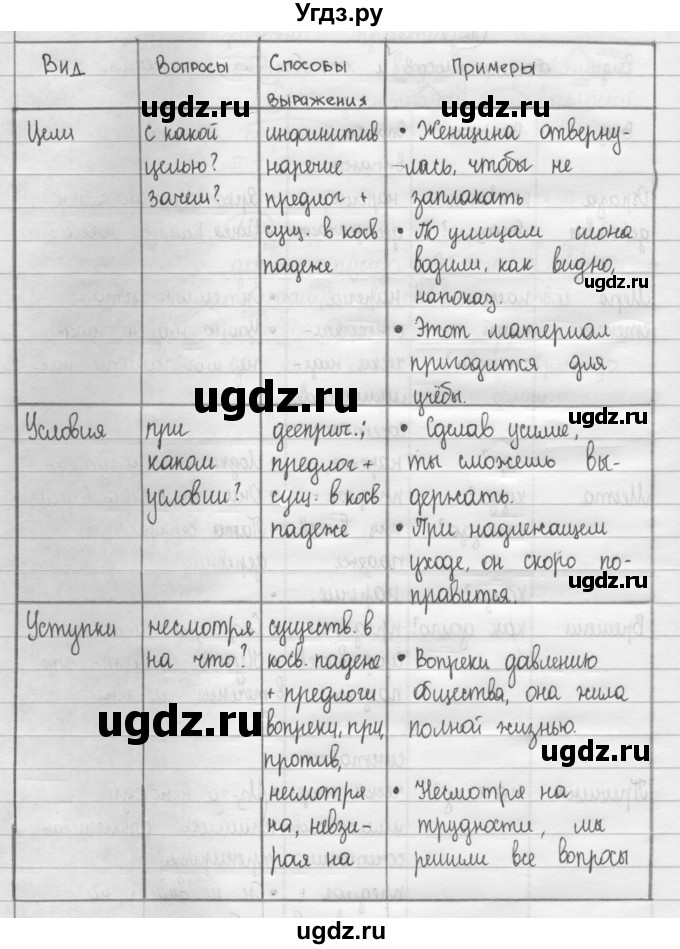 Угдз.ру
Вид
Вопросы
Способы
выражения
Примеры
ugdz.ru
ugdz.ru
Цели
с какой
целью?
зачем?
инфинитив
наречие
предлог +
сущ. в косв
падеже
• Женщина отверну-
лась, чтобы не
заплакать
• По улицам слона
водили, как видно,
напоказ
• Этот материал
пригодится для
учёбы.
ugdz.ru
ugdz.ru
ugdz.ru
Условия
при
каком
условии?
дееприч.;
предлог +
сущ. в косв
падеже
• Сделав усилие,
ты сможешь вы-
держать.
• При надлежащем
уходе, он скоро по-
правится.
ugdz.ru
Уступки
несмотря
на что?
существ. в
косв. падеже
+ предлоги
вопреки, при,
против,
несмотря
на, невзи-
рая на
• Вопреки давлению
общества, она жила
полной жизнью.
• Несмотря на
трудности, мы
решили все вопросы
ugdz.ru
ugdz.ru
ugdz.ru
ugdz.ru